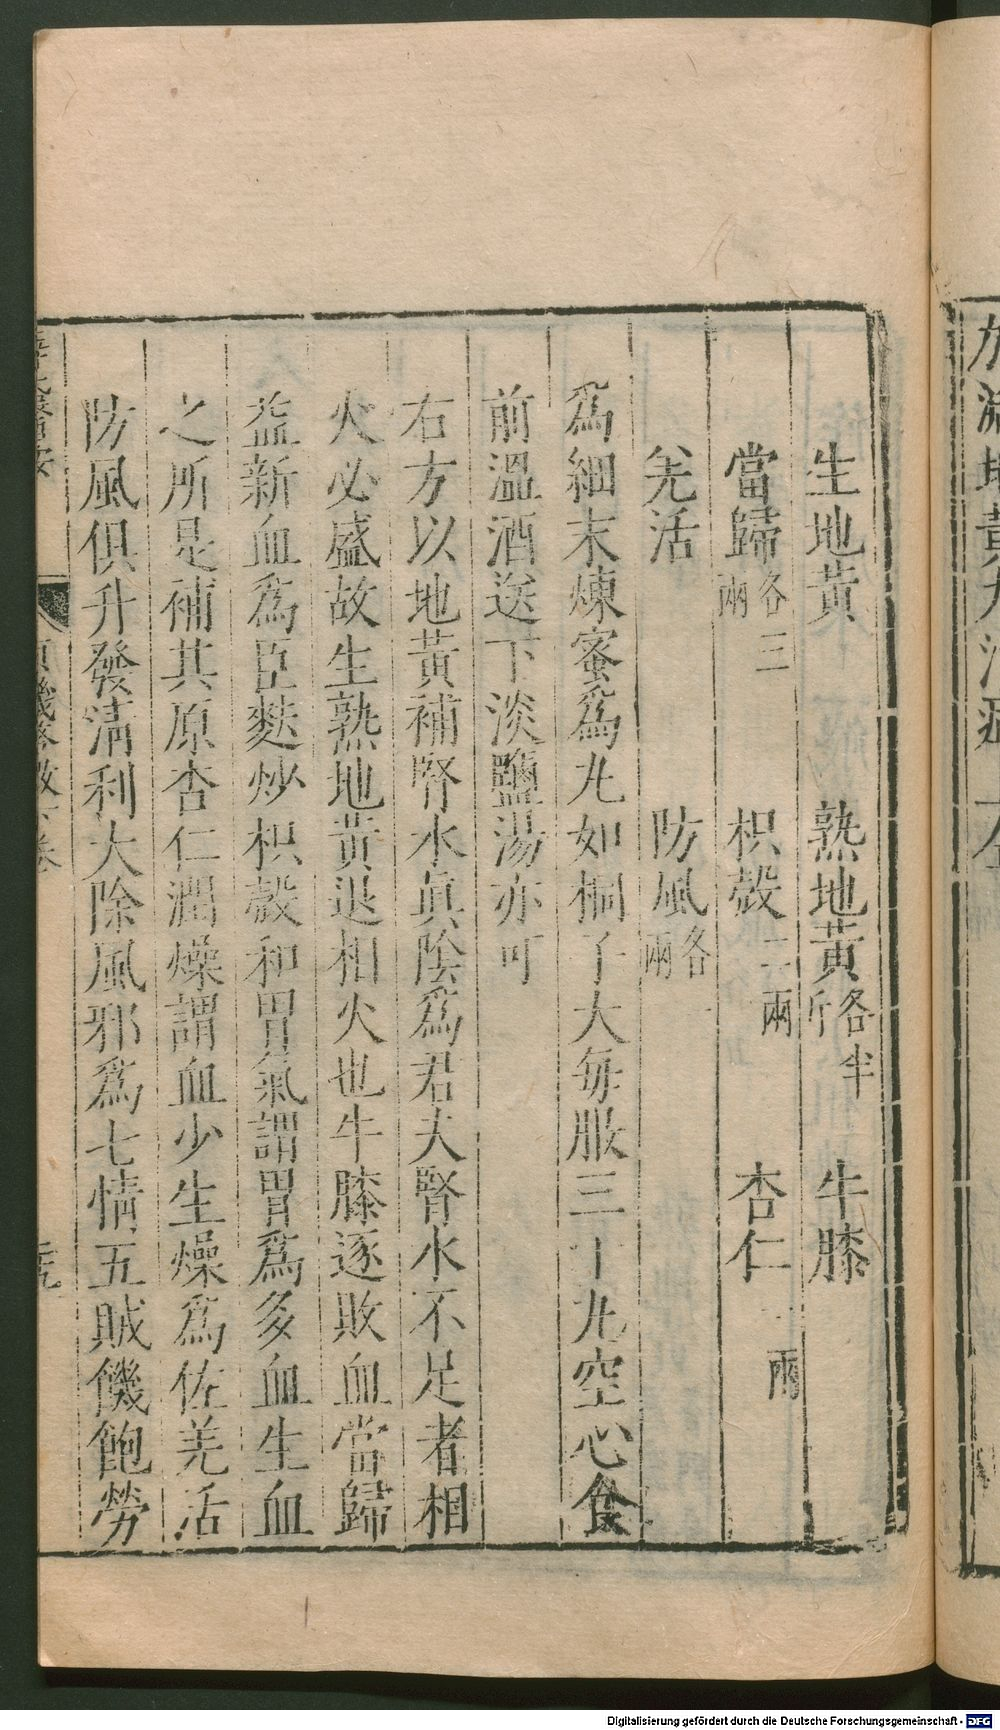 生地黃 熟地黃各半斤 牛膝
當歸各三兩 枳殼二兩 杏仁二兩
羌活 防風各一兩
爲細末煉蜜爲丸如桐子大每服三十丸空心食
前溫酒送下淡鹽湯亦可
右方以地黃補腎水眞陰爲君夫腎水不足者相
火必盛故生熟地黃退相火也牛膝逐敗血當歸
益新血爲臣麩炒枳殼和胃氣謂胃爲多血生血
之所是補其原杏仁潤燥謂血少生燥爲佐羌活
防風俱升發淸利大除風邪爲七情五賊饑飽勞
原機啓微下卷
Digitalisierung gefördert durch die Deutsche Forschungsgemeinschaft - DFG